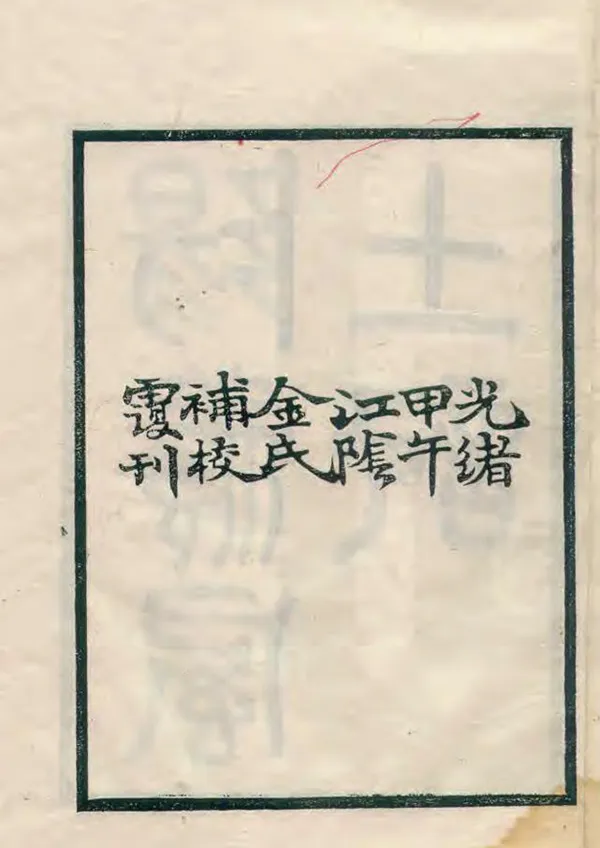 光緒
甲午
江陰
金氏
補校
覆刊